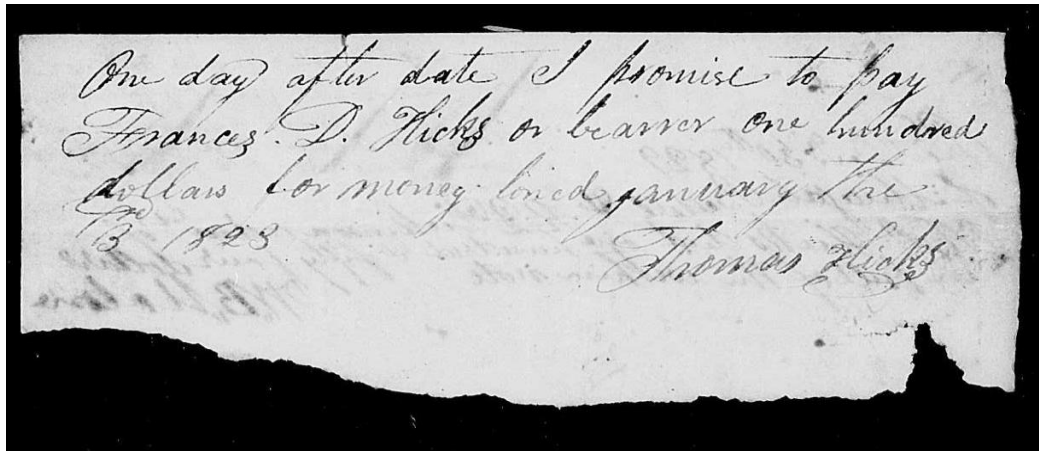 One day after date I promise to pay
Frances. D. Hicks or bearrer one hundred
dollars for money loned january the
3rd 1823
Thomas Hicks